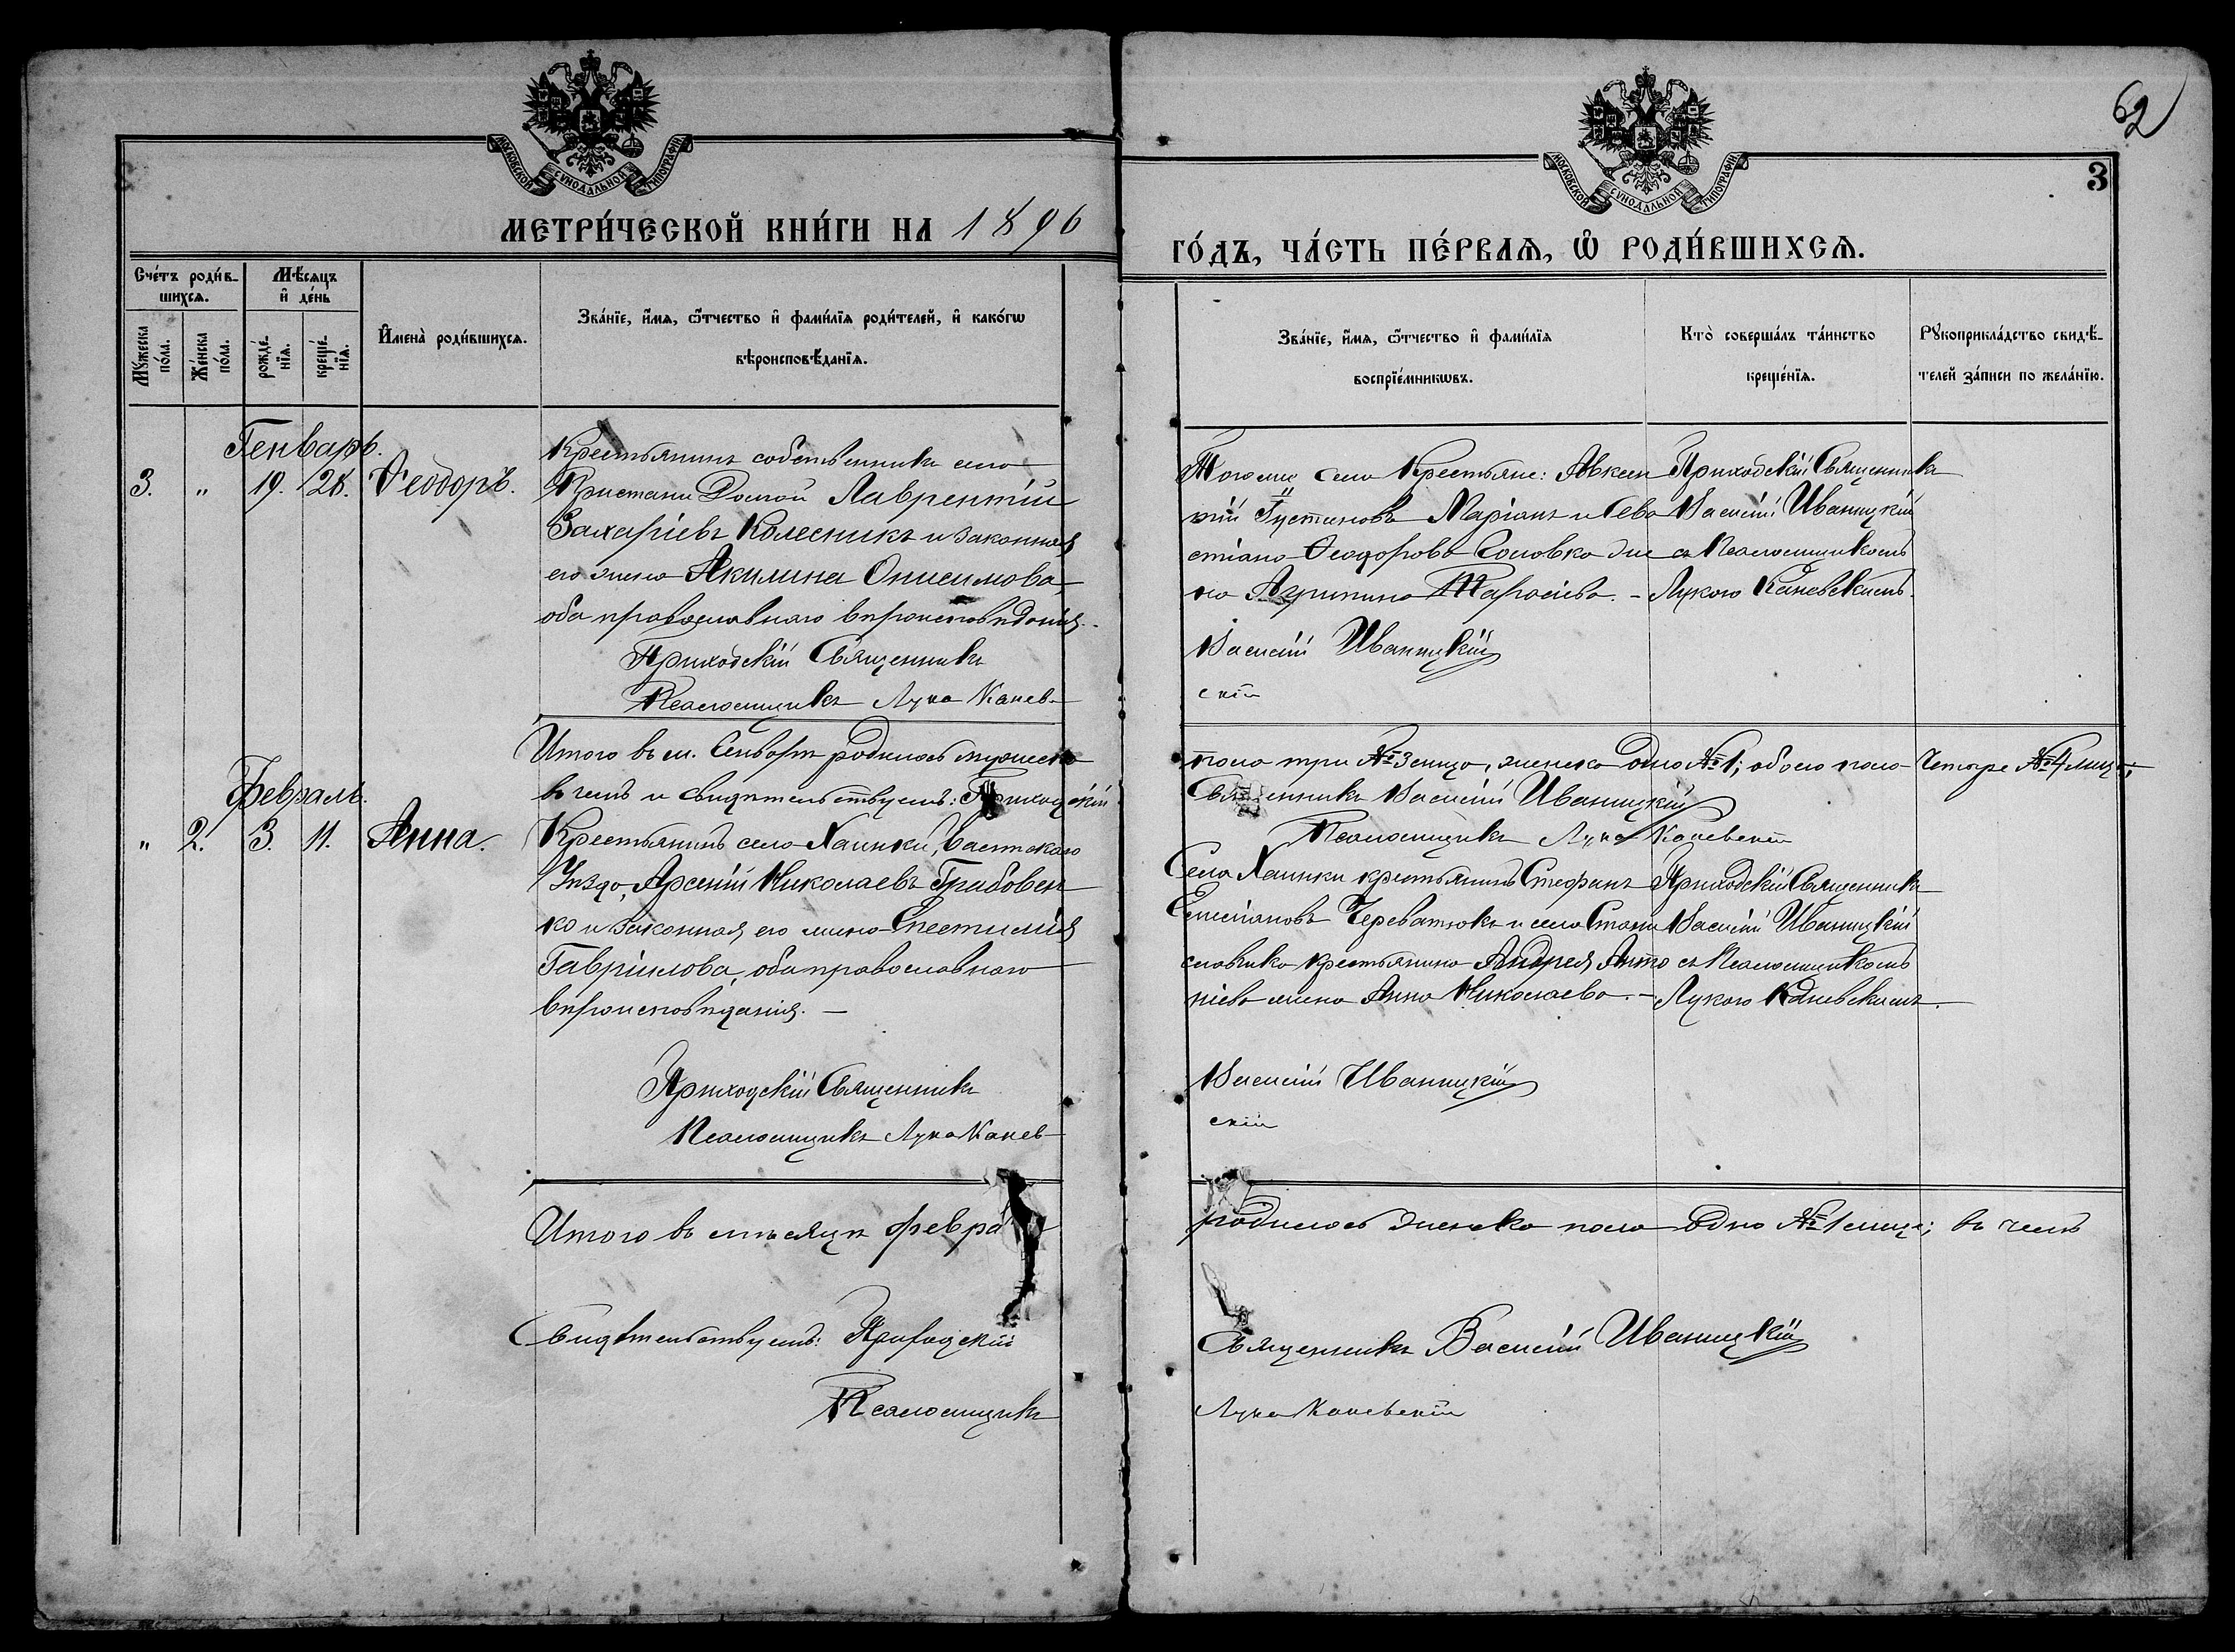 62
МОСКОВСКОЙ СѴНОДАЛЬНОЙ ТИПОГРАФІИ
МОСКОВСКОЙ СѴНОДАЛЬНОЙ ТИПОГРАФІИ
3
МЕТРИ́ЧЕСКОЙ КНИ́ГИ НА 1896
ГО́ДЪ, ЧА́СТЬ ПЕ́РВАѦ, Ѡ҆ РОДИ́ВШИХСѦ.
Сче́тъ роди́в-
шихсѧ.
Мꙋжеска по́ла.
Же́нска по́ла.
Мѣ́сѧцъ
и҆ де́нь
рожде́нїѧ.
креще́нїѧ.
И҆мена̀ роди́вшихсѧ.
Зва́нїе, и҆́мѧ, ѻ҆́тчество и҆ фами́лїѧ роди́телей, и҆ како́гѡ
вѣроисповѣ́данїѧ.
Зва́нїе, и҆́мѧ, ѻ҆́тчество и҆ фами́лїѧ
воспрїе́мникѡвъ.
Кто̀ соверша́лъ та́инство
креще́нїѧ.
Рꙋкоприкла́дство свидѣ́-
телей за́писи по жела́нїю.
Генварь.
3. " 19. 28. Ѳеодоръ.
Крестьянинъ собственникъ села
Пристани Долгой Лаврентій
Захаріевъ Колесникъ и законная
его жена Акилина Онисимова,
оба православнаго вѣроисповѣданія.
Приходскій Священникъ
Псаломщикъ Лука Канев-
Того же села Крестьяне: Авксен
тій Густиновъ Маріанъ и Сева
стіана Ѳеодорова Соловка же
на Агрипина Тарасіева. -
Приходскій Священникъ
Василій Иваницкій
съ Псаломщикомъ
Лукою Каневскимъ.
Василій Иваницкій
скій
Итого въ м. Генварѣ родилось мужеска
пола три №3 лица, женска одно №1; обоего пола Четыре №4 лица;
въ чемъ и свидѣтельствуемъ: Приходскій
Священникъ Василій Иваницкій
Псаломщикъ Лука Каневскій
Февраль.
" 2. 3. 11. Анна.
Крестьянинъ села Хаинки,
Уѣзда, Арсеній Николаевъ Грабовен
ко и законная его жена
Гавріилова, оба православнаго
вѣроисповѣданія. -
Приходскій Священникъ
Псаломщикъ Лука Канев-
Села Хаинки крестьянинъ Стефанъ
Череватюкъ и села Стани
славчика крестьянина Андрея Анто
ніева жена Анна Николаева. -
Приходскій Священникъ
Василій Иваницкій
съ Псаломщикомъ
Лукою Каневскимъ.
Василій Иваницкій
скій
Итого въ мѣсяцѣ февра
родилось женска пола одно №1 лице; въ чемъ
Свидѣтельствуемъ: Приходскій
Священникъ Василій Иваницкій
Псаломщикъ
Лука Каневскій